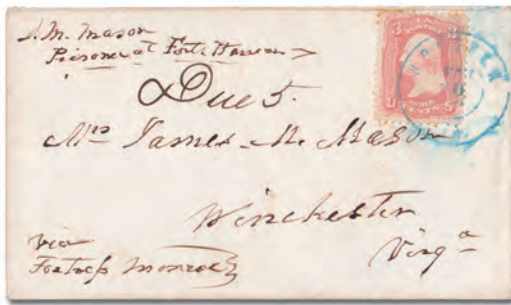 J. M. Mason
Prisoner at Fort Warren
Due 5.
Mrs James M. Mason
Winchester
Virga
via
Fortress Monroe
3 3
U S
NOR